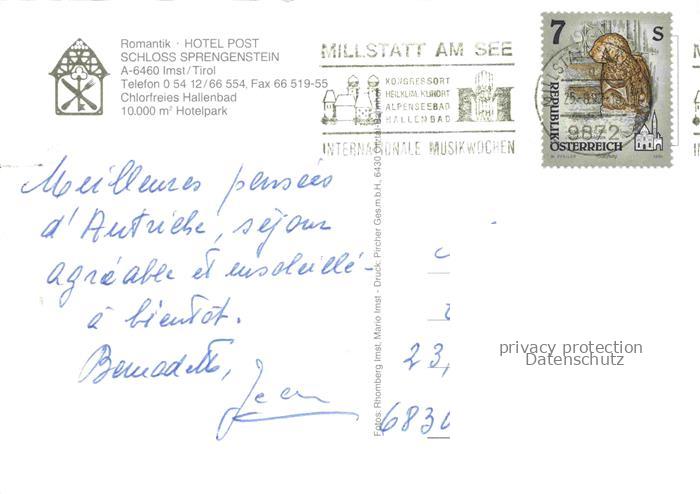 Romantik · HOTEL POST
SCHLOSS SPRENGENSTEIN
A-6460 Imst/Tirol
Telefon 0 54 12/66 554, Fax 66 519-55
Chlorfreies Hallenbad
10.000 m² Hotelpark
MILLSTATT AM SEE
KONGRESSORT
HEILKLIM. KURORT
ALPENSEEBAD
HALLENBAD
INTERNATIONALE MUSIKWOCHEN
7 S
REPUBLIK
ÖSTERREICH
9872
Meilleures pensées
d'Autriche, séjour
agréable et ensoleillé -
à bientôt.
Bernadette,
Jean
Fotos: Rhomberg Imst, Mario Imst - Druck: Pircher Ges.m.b.H., 6430
23,
6830
privacy protection
Datenschutz